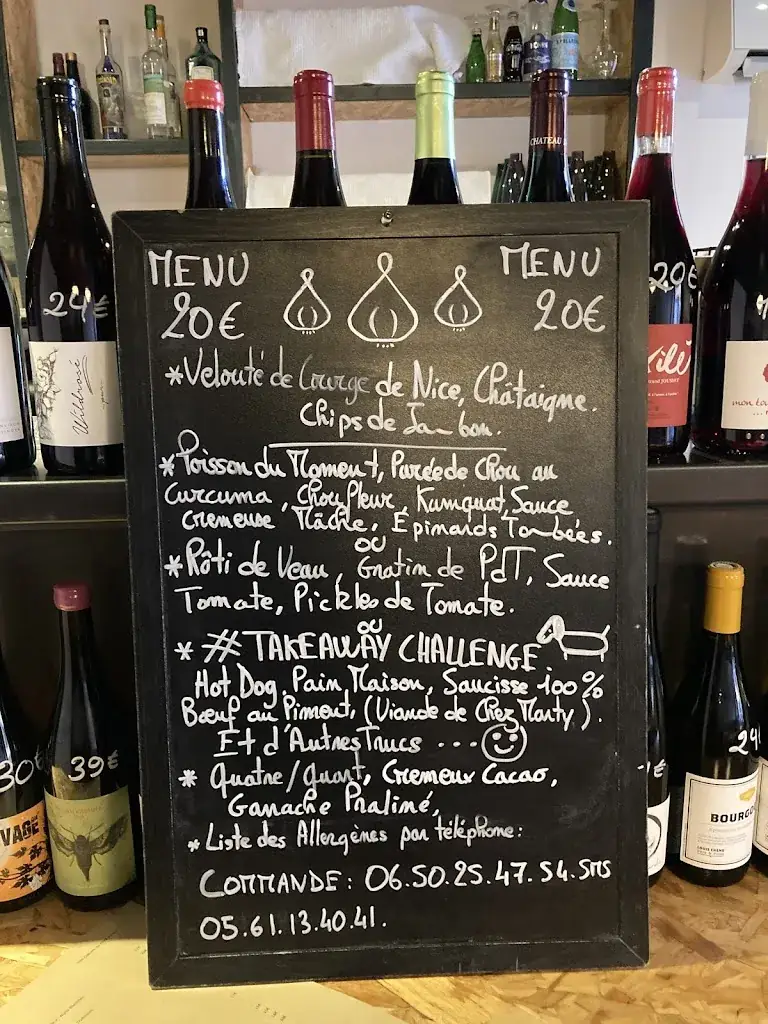 MENU
20€
MENU
20€
*Velouté de Courge de Nice, Châtaigne.
Chips de Jambon.
*Poisson du Moment, Purée de Chou au
Curcuma, Chou fleur, Kumquat, Sauce
cremeuse Mâche, Epinards Tombées.
OU
*Rôti de Veau, Gratin de PdT, Sauce
Tomate, Pickles de Tomate.
OU
* #TAKEAWAY CHALLENGE
Hot Dog, Pain Maison, Saucisse 100%
Bœuf au Piment, (Viande de Chez Marty).
Et d'Autres Trucs ...
* Quatre/quart, Cremeux Cacao,
Ganache Praliné,
*Liste des Allergènes par téléphone:
COMMANDE: 06.50.25.47.54. SMS
05.61.13.40.41.
24€
Wildrose
CHATEAU
20€
Xilé
mon tou
30€
VAGE
39€
24
BOURGO